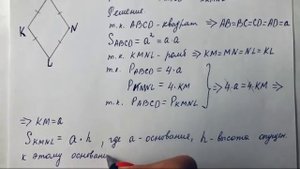 K
N
L
Решение
т.к. ABCD - квадрат => AB=BC=CD=AD=a
S_ABCD = a² = a·a
т.к. KMNL - ромб => KM=MN=NL=KL
т.к. P_ABCD = 4·a
P_KMNL = 4·KM
т.к. P_ABCD = P_KMNL
=> 4·a = 4·KM =>
=> KM=a
S_KMNL = a·h, где a - основание, h - высота опущен.
к этому основани